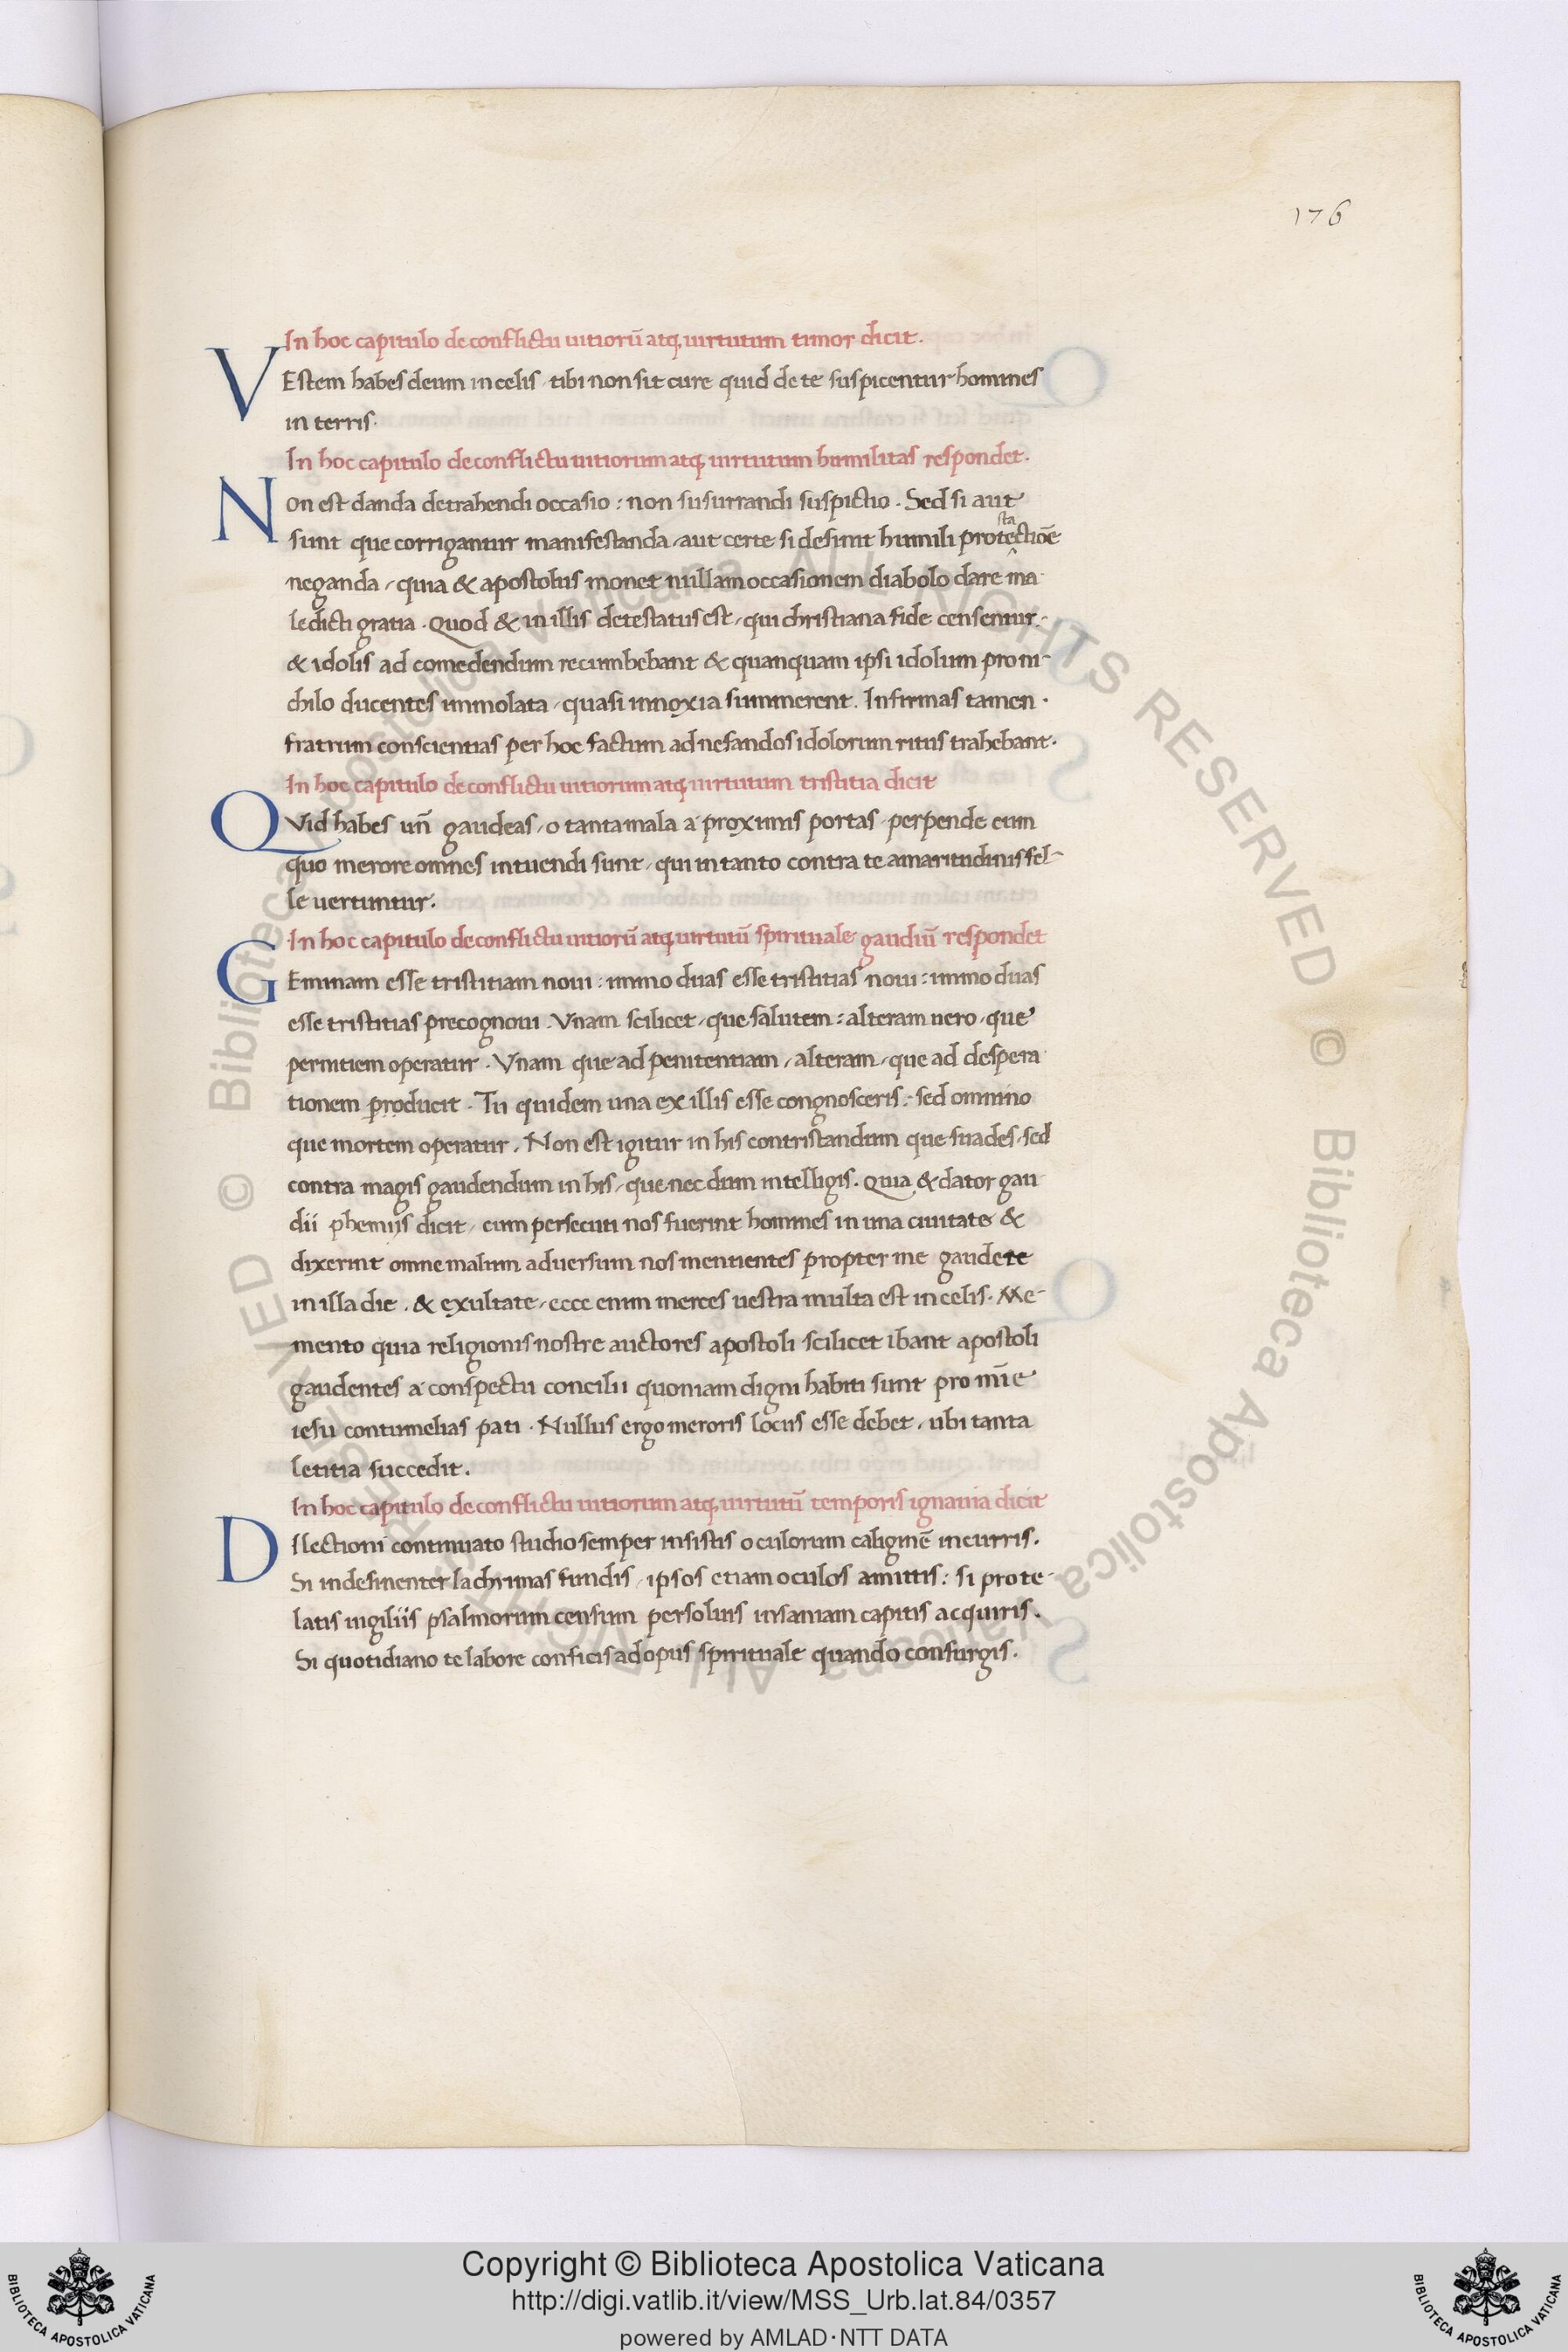 176
In hoc capitulo de conflictu uitiorū atq; uirtutum timor dicit.
VEstem habes deum in celis, tibi non sit cure quid de te suspicentur homines
in terris.
In hoc capitulo de conflictu uitiorum atq; uirtutum humilitas respondet.
Non est danda detrahendi occasio: non susurrandi suspictio. Sed si aut
sunt que corrigantur manifestanda, aut certe si desunt humili protectiōe
sta
neganda, quia & apostolus monet nullam occasionem diabolo dare ma
ledicti gratia. Quod & in illis detestatus est, qui christiana fide censentur.
& idolis ad comedendum recumbebant & quanquam ipsi idolum pro ni-
chilo ducentes immolata, quasi innoxia summerent. Infirmas tamen.
fratrum conscientias per hoc factum ad nefandos idolorum ritus trahebant.
In hoc capitulo de conflictu uitiorum atq; uirtutum tristitia dicit
QVid habes un̄ gaudeas, o tanta mala a proximis portas, perpende cum
quo merore omnes intuendi sunt, qui in tanto contra te amaritudinis fel-
le uertuntur.
In hoc capitulo de conflictu uitiorū atq; uirtutū spirituale gaudiū respondet
GEminam esse tristitiam noui: immo duas esse tristitias noui: immo duas
esse tristitias precognoui. Vnam scilicet, que salutem: alteram uero, que
pernitiem operatur. Vnam que ad penitentiam, alteram, que ad despera
tionem producit. Tu quidem una ex illis esse congnosceris: sed omnino
que mortem operatur. Non est igitur in his contristandum que suades, sed
contra magis gaudendum in his, que nec dum intelligis. Quia & dator gau
dii phemijs dicit, cum persecuti nos fuerint homines in una ciuitate &
dixerint omne malum aduersum nos mentientes propter me gaudete
in illa die. & exultate, ecce enim merces uestra multa est in celis. Me-
mento quia religionis nostre auctores apostoli scilicet ibant apostoli
gaudentes a conspectu concilii quoniam digni habiti sunt pro nn̄e
iesu contumelias pati. Nullus ergo meroris locus esse debet, ubi tanta
letitia succedit.
In hoc capitulo de conflictu uitiorum atq; uirtutū temporis ignauia dicit
DI lectioni continuato studio semper insistis oculorum caliginē incurris.
Si indesinenter lachrimas fundis, ipsos etiam oculos amittis: si prote-
latis uigiliis psalmorum censum persoluis insaniam capitis acquiris.
Si quotidiano te labore conficis ad opus spirituale quando consurgis.
© Biblioteca Apostolica Vaticana ALL RIGHTS RESERVED
© Biblioteca Apostolica Vaticana ALL RIGHTS RESERVED
Copyright © Biblioteca Apostolica Vaticana
http://digi.vatlib.it/view/MSS_Urb.lat.84/0357
powered by AMLAD·NTT DATA
BIBLIOTECA APOSTOLICA VATICANA
BIBLIOTECA APOSTOLICA VATICANA